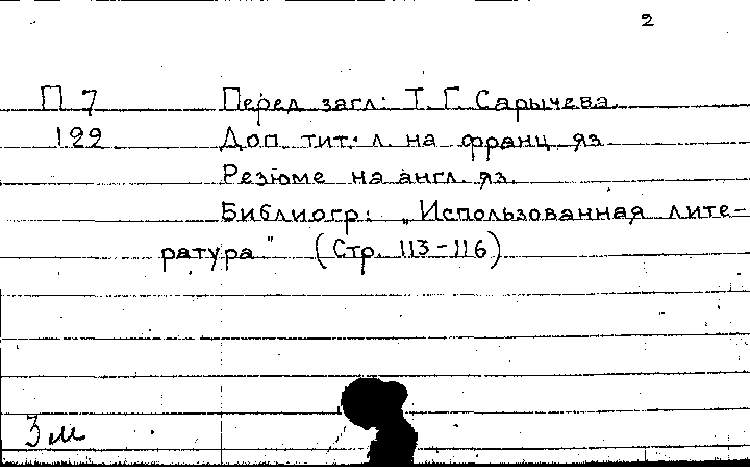 2
П 7 Перед загл: Т. Г. Сарычева.
122 Доп. тит. л. на франц. яз.
Резюме на англ. яз.
Библиогр: „Использованная лите-
ратура" (Стр. 113-116)
3 м